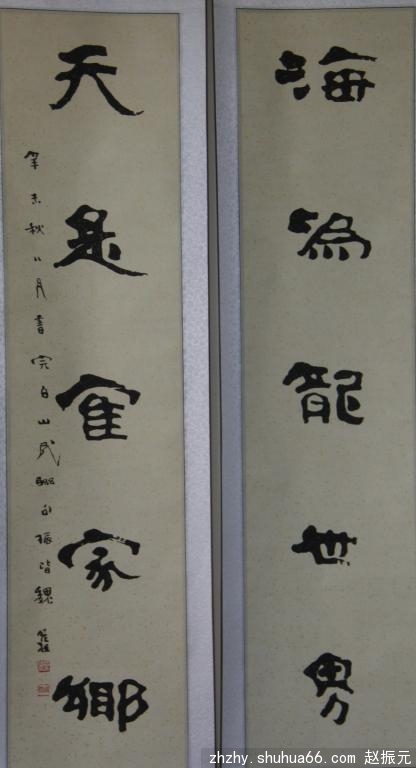 海為龍世界
天是隺家鄉
辛未秋八月書完白山民聯句振皆魏
zhzhy.shuhua66.com 赵振元